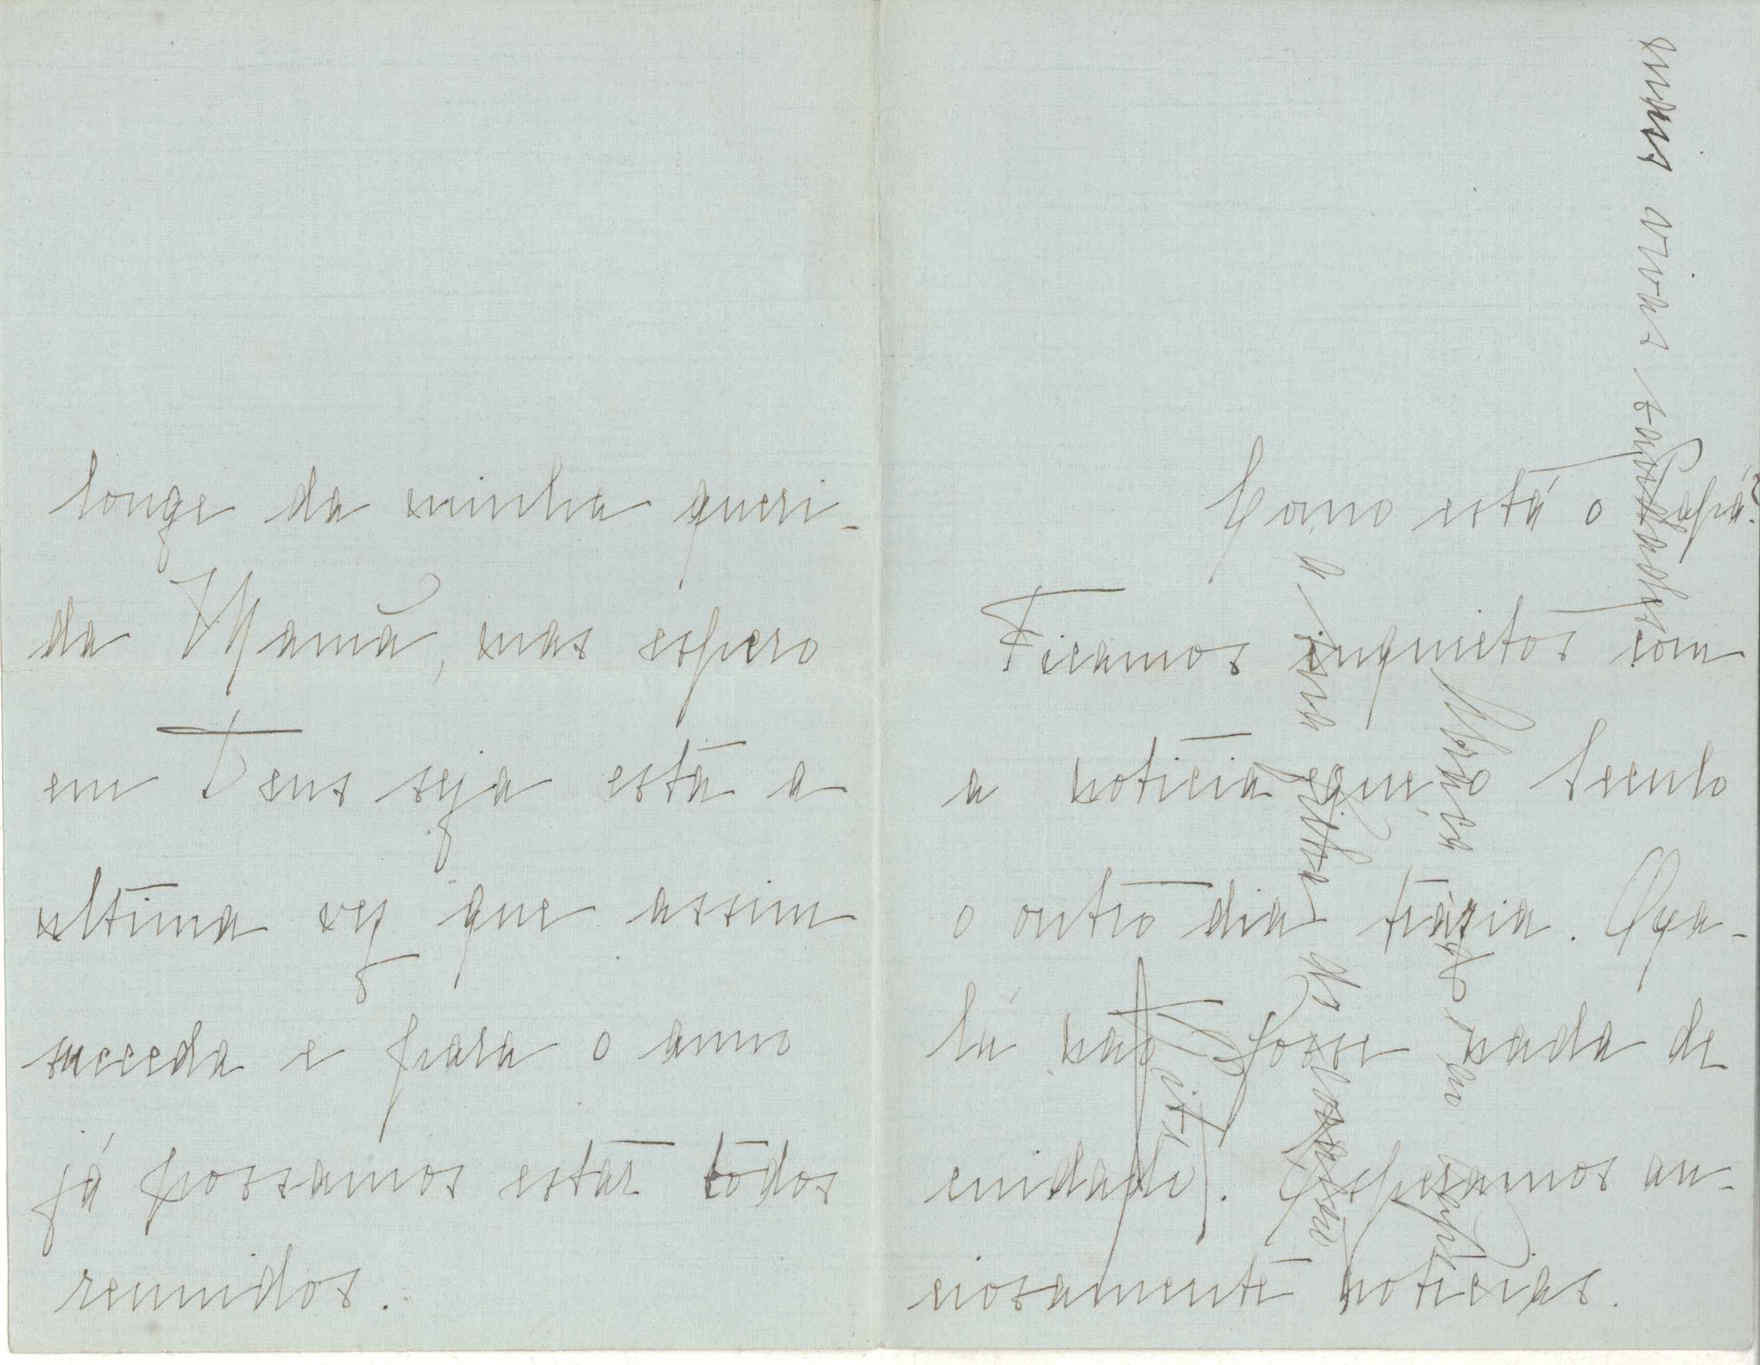 longe da minha queri-
da Mamã, mas espero
em Deus seja esta a
ultima vez que assim
succeda e para o anno
já possamos estar todos
reunidos.
Como está o Papá?
Ficamos inquietos com
a noticia que o Seculo
o outro dia trazia. Oxa-
lá não fosse nada de
cuidado. Esperamos an-
ciosamente noticias.
mais vivas saudades
do Papá
a sua filha do coração